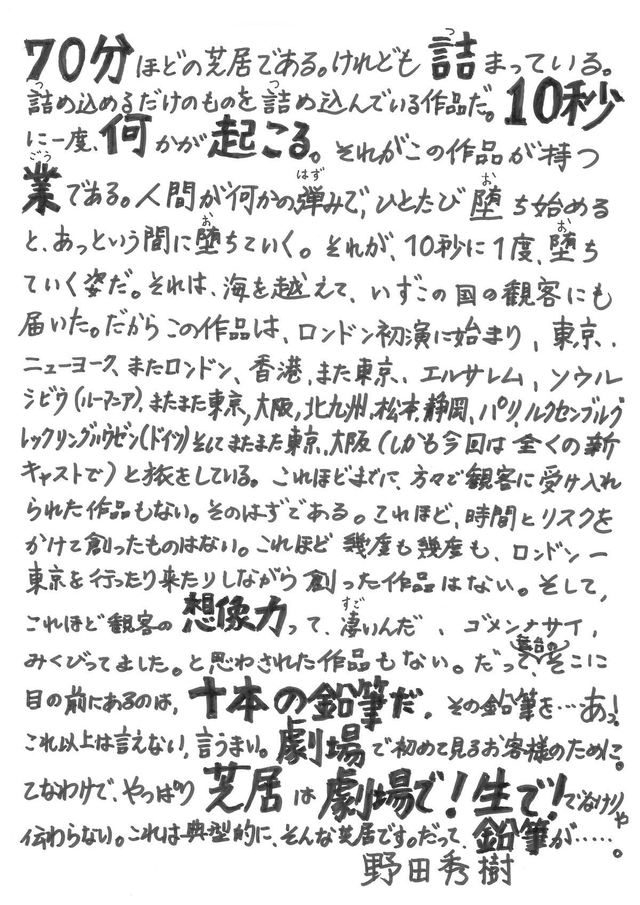 70分ほどの芝居である。けれども詰まっている。
詰め込めるだけのものを詰め込んでいる作品だ。10秒
に一度、何かが起こる。それがこの作品が持つ
業である。人間が何かの弾みで、ひとたび堕ち始める
と、あっという間に堕ちていく。それが、10秒に1度、堕ち
ていく姿だ。それは、海を越えて、いずこの国の観客にも
届いた。だからこの作品は、ロンドン初演に始まり、東京、
ニューヨーク、またロンドン、香港、また東京、エルサレム、ソウル
シビウ(ルーマニア)、またまた東京,大阪,北九州,松本,静岡、パリ,ルクセンブルグ
レックリングハウゼン(ドイツ)そしてまたまた東京、大阪(しかも今回は全くの新
キャストで)と旅をしている。これほどまでに、方々で観客に受け入れ
られた作品もない。そのはずである。これほど、時間とリスクを
かけて創ったものはない。これほど幾度も幾度も、ロンドン―
東京を行ったり来たりしながら創った作品はない。そして、
これほど観客の想像力って、凄いんだ、ゴメンナサイ,
みくびってました。と思わされた作品もない。だって、舞台のそこに
目の前にあるのは,十本の鉛筆だ。その鉛筆を…あっ!
これ以上は言えない,言うまい。劇場で初めて見るお客様のために。
てなわけで、やっぱり芝居は劇場で!生で!でなけりゃ
伝わらない。これは典型的に、そんな芝居です。だって、鉛筆が……。
野田秀樹